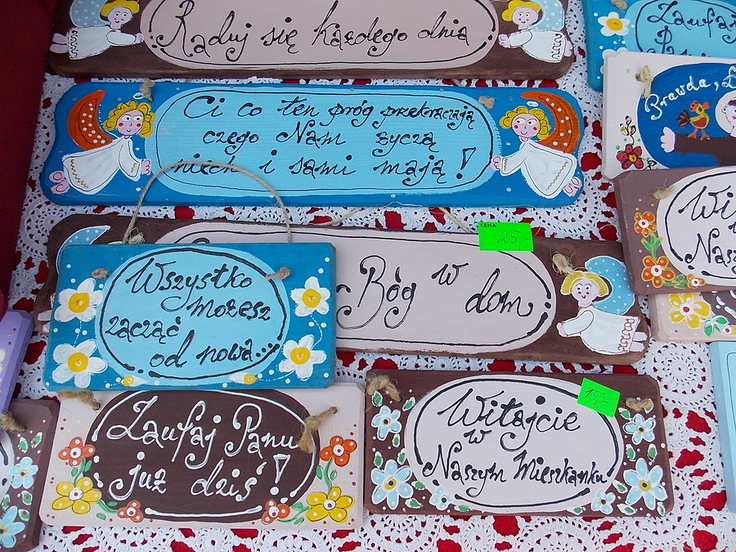 Raduj się każdego dnia
Zaufaj
Ci co ten próg przekraczają
czego Nam życzą
niech i sami mają!
Prawda,
CENA
25,-
- Bóg w dom
Wszystko
możesz
zacząć
od nowa...
Zaufaj Panu
już dziś!
15,-
Witajcie
w
Naszym Mieszkanku